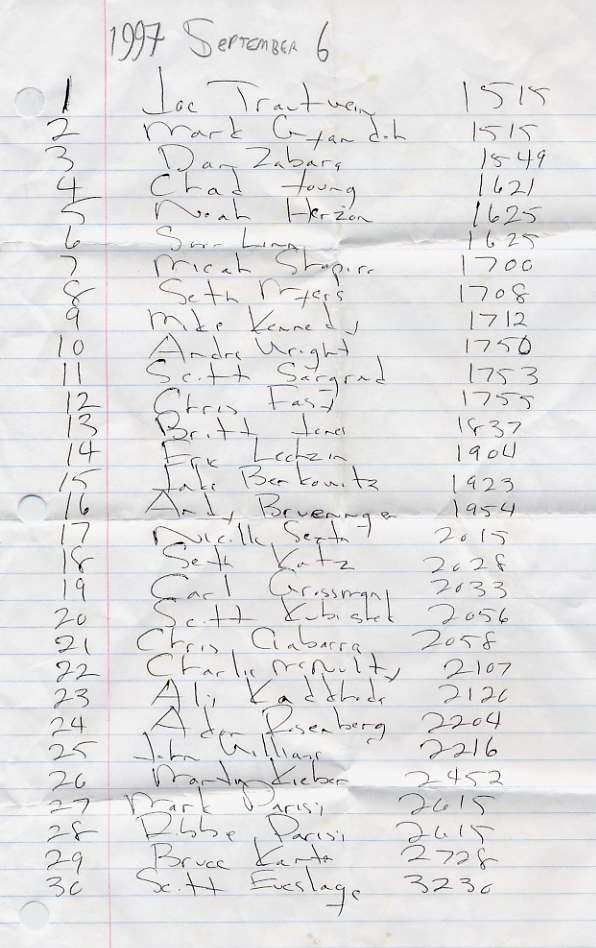 1997 SEPTEMBER 6
1 Joe Trautwein 1515
2 Mark Gyandoh 1515
3 Dan Zabara 1549
4 Chad Young 1621
5 Noah Herzon 1625
6 1625
7 Micah Shapiro 1700
8 Seth Myers 1708
9 Mike Kennedy 1712
10 Andre Wright 1750
11 Scott Sargrad 1753
12 Chris Fast 1755
13 Britt Jones 1837
14 Eric Lechzin 1904
15 Jake Berkowitz 1923
16 Andy Brueninger 1954
17 Nicolle 2015
18 Seth Katz 2028
19 Carl Grossman 2033
20 Scott Kubistek 2056
21 Chris 2058
22 Charlie McNulty 2107
23 2120
24 Rosenberg 2204
25 John Williams 2216
26 Kieber 2452
27 Mark Parisi 2615
28 Robbe Parisi 2615
29 Bruce Kanto 2728
30 Scott 3230